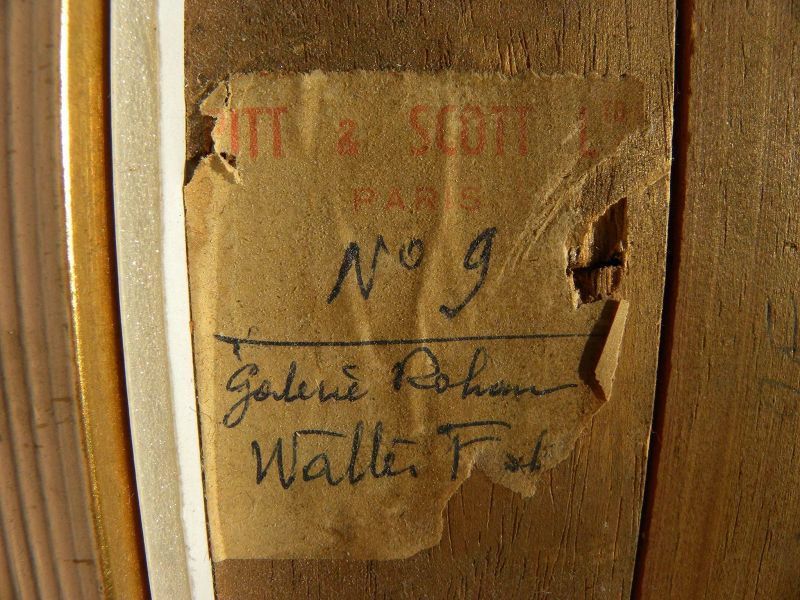 ITT & SCOTT LTD
PARIS
No 9
Galerie Rohan
Walter F